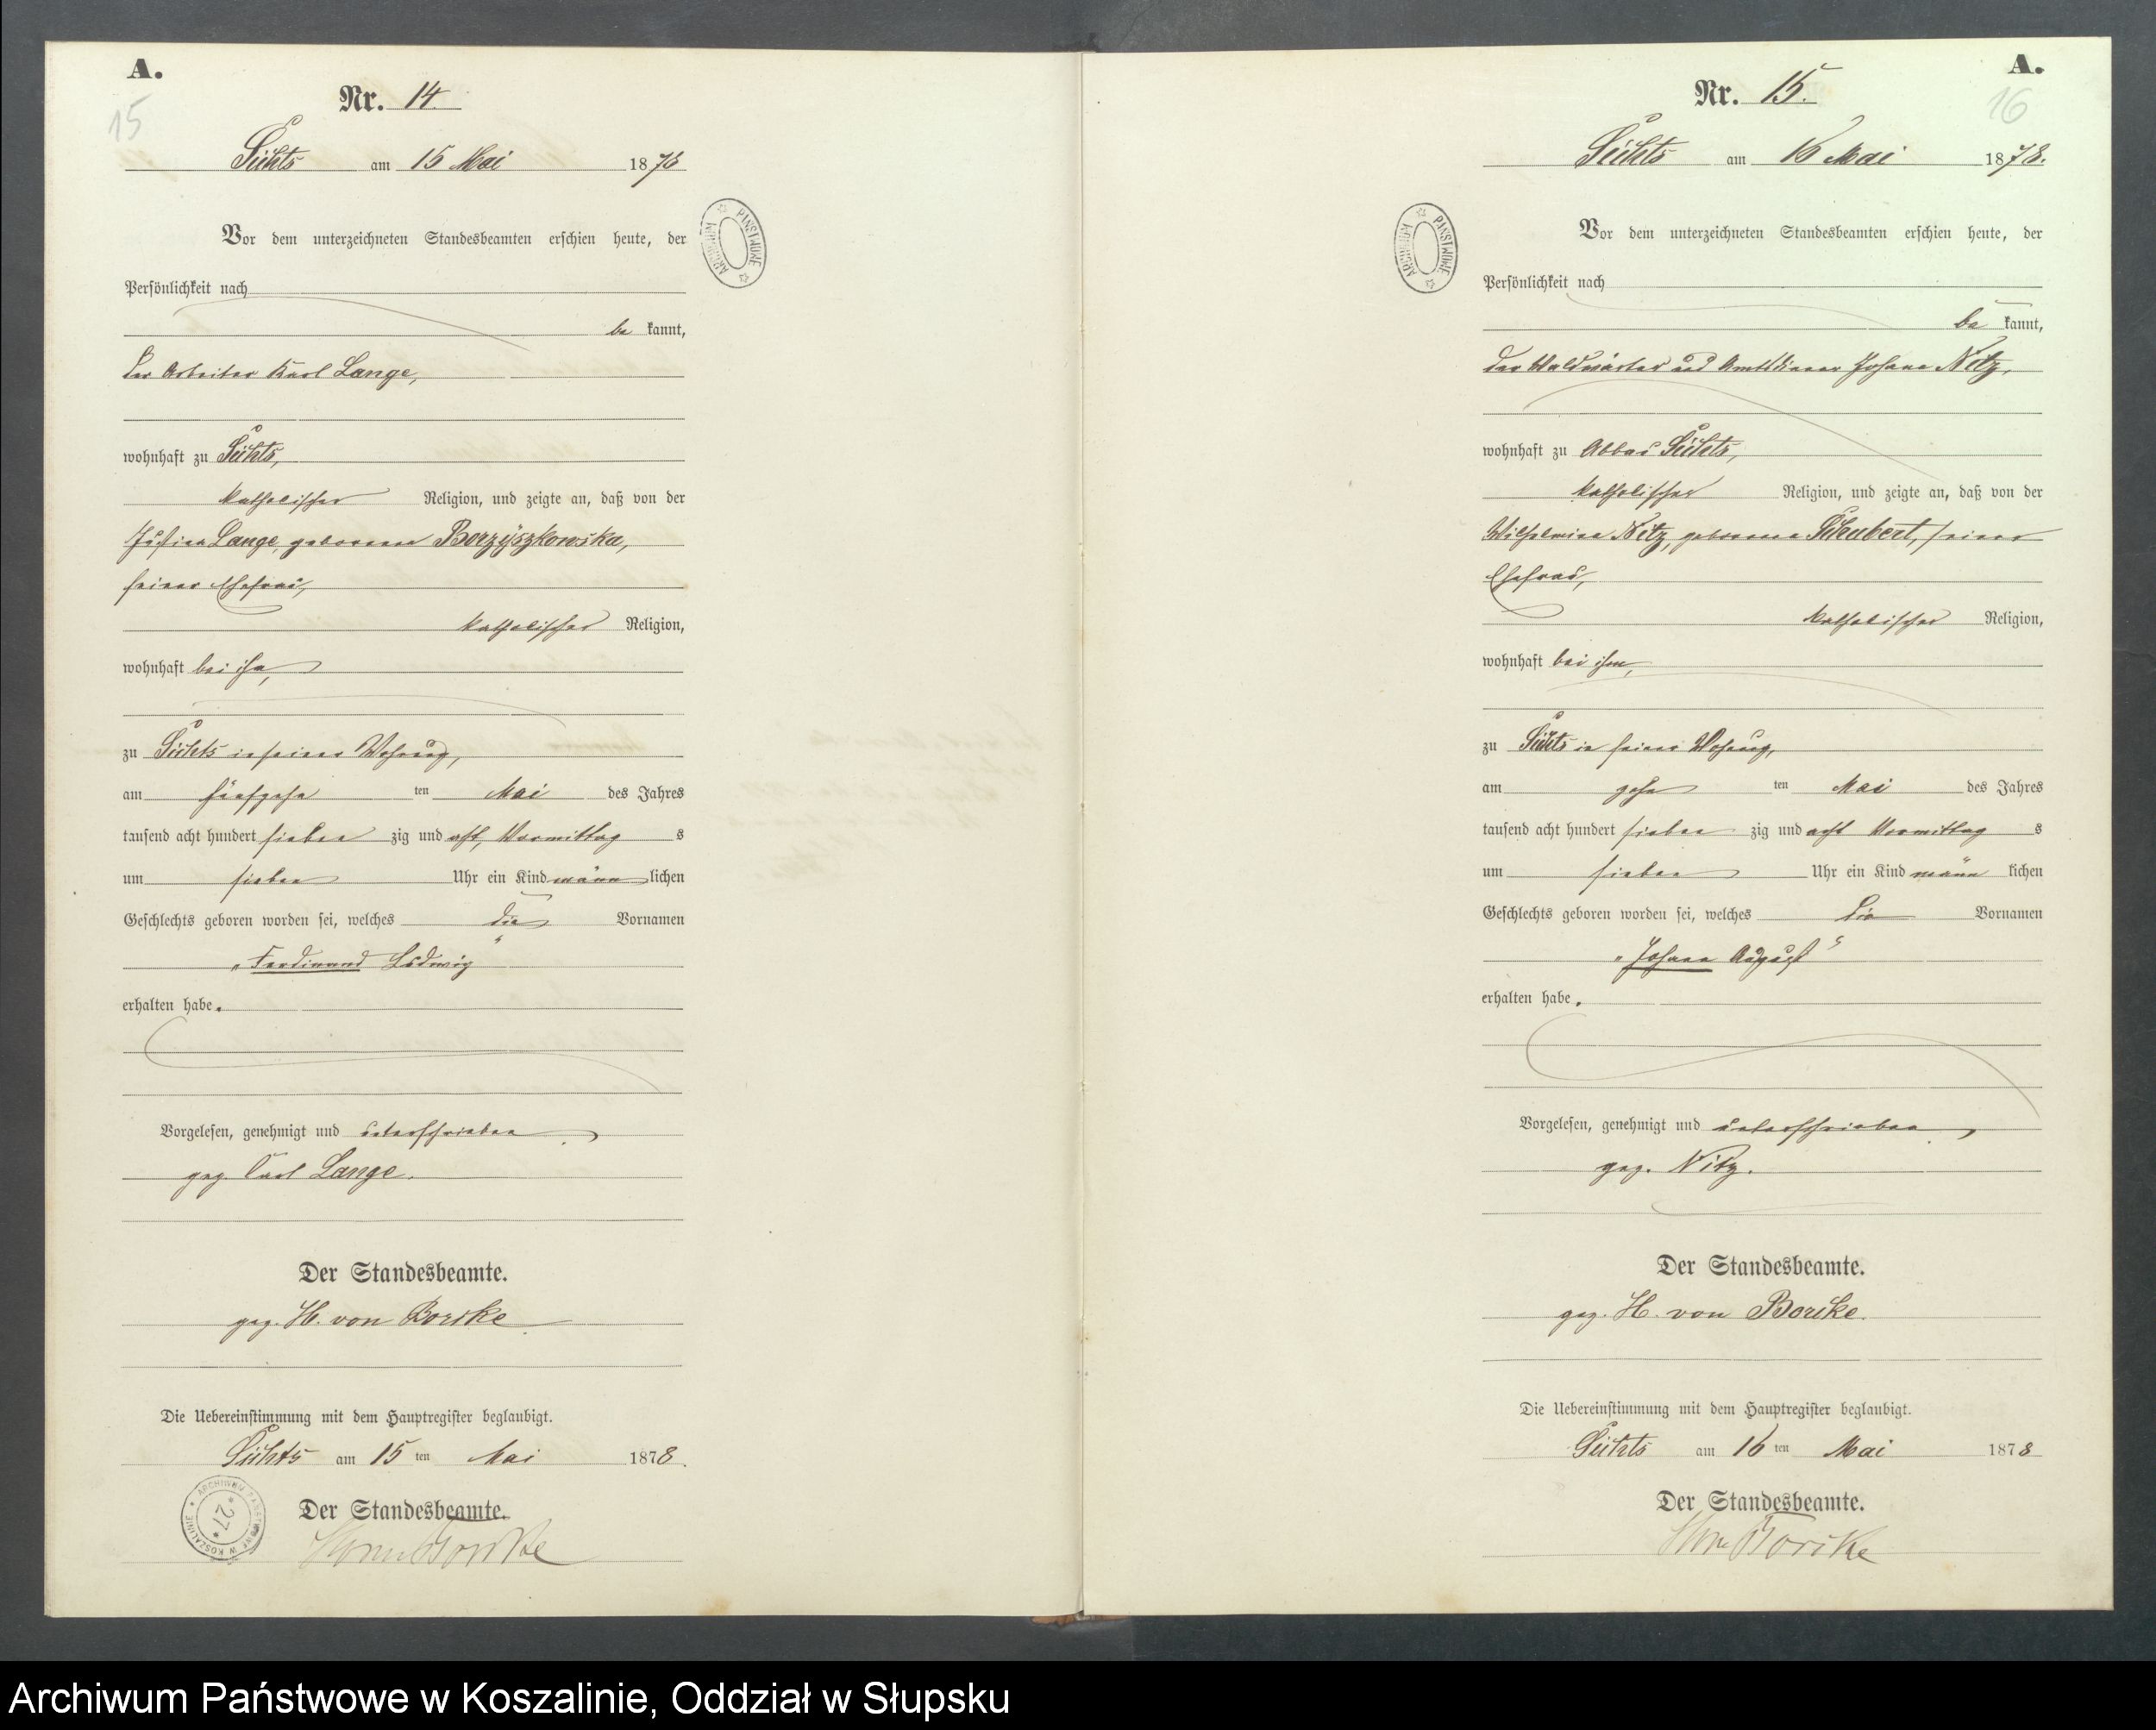 A.
15
Nr. 14
Lühts am 15 Mai 1878
Vor dem unterzeichneten Standesbeamten erschien heute, der
Persönlichkeit nach
be kannt,
der Arbeiter Karl Lange,
wohnhaft zu
katholischer Religion, und zeigte an, daß von der
Justine Lange, geborenen Borzÿszkowska,
seiner Ehefrau,
katholischer Religion,
wohnhaft bei ihm,
zu in seiner Wohnung,
am fünfzehn ten Mai des Jahres
tausend acht hundert sieben zig und acht, Vormittag s
um sieben Uhr ein Kind männ lichen
Geschlechts geboren worden sei, welches die Vornamen
„Ferdinand Ludwig“
erhalten habe.
Vorgelesen, genehmigt und unterschrieben
gez. Carl Lange.
Der Standesbeamte.
gez. H. von
Die Uebereinstimmung mit dem Hauptregister beglaubigt.
am 15 ten Mai 1878.
Der Standesbeamte.
ARCHIWUM PAŃSTWOWE
ARCHIWUM PAŃSTWOWE W KOSZALINIE
* 27 *
A.
16
Nr. 15.
am 16 Mai 1878.
Vor dem unterzeichneten Standesbeamten erschien heute, der
Persönlichkeit nach
be kannt,
der Waldwärter und Amtsdiener Johann Nitz,
wohnhaft zu Abbau
katholischer Religion, und zeigte an, daß von der
Wilhelmine Nitz, geborene Schubert, seiner
Ehefrau,
katholischer Religion,
wohnhaft bei ihm,
zu in seiner Wohnung,
am zehn ten Mai des Jahres
tausend acht hundert sieben zig und acht Vormittag s
um sieben Uhr ein Kind männ lichen
Geschlechts geboren worden sei, welches die Vornamen
„Johann August“
erhalten habe.
Vorgelesen, genehmigt und unterschrieben
gez. Nitz.
Der Standesbeamte.
gez. H. von
Die Uebereinstimmung mit dem Hauptregister beglaubigt.
am 16 ten Mai 1878
Der Standesbeamte.
ARCHIWUM PAŃSTWOWE
Archiwum Państwowe w Koszalinie, Oddział w Słupsku